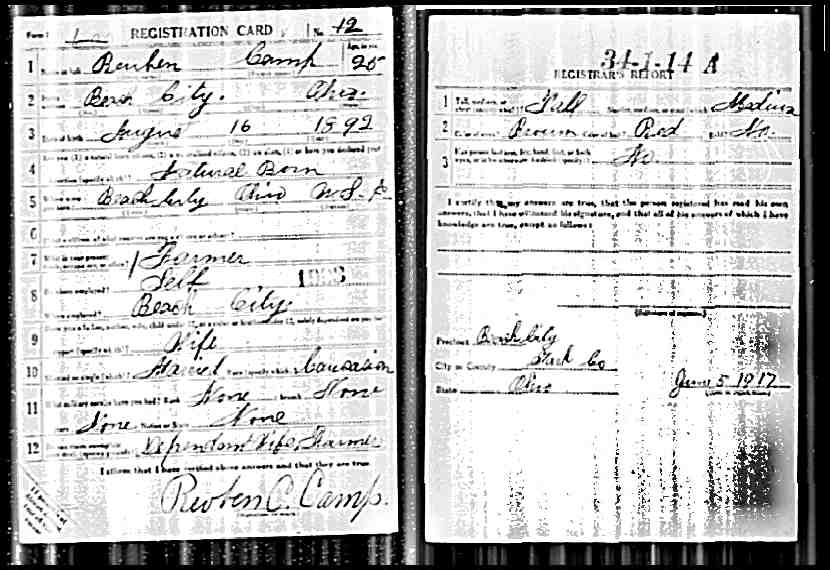 Form 1 REGISTRATION CARD No. 12
1 Reuben Camp Age, in yrs. 25
2 Beach City. Ohio.
3 Date of birth August 16 1892
4 Are you (1) a natural born citizen, (2) a naturalized citizen, (3) an alien, (4) or have you declared your
intention (specify which)? Natural Born
5 Where were you born? Beach City Ohio U.S.A.
6 If not a citizen, of what country are you a citizen or subject?
7 What is your present trade, occupation, or office? Farmer
8 By whom employed? Self
Where employed? Beach City.
9 Have you a father, mother, wife, child under 12, or a sister or brother under 12, solely dependent on you for
support (specify which)? Wife
10 Married or single (which)? Married Race (specify which)? Caucasian
11 What military service have you had? Rank None branch None
years None Nation or State None
12 Do you claim exemption from draft (specify grounds)? Dependant Wife, Farmer
I affirm that I have verified above answers and that they are true.
Reuben C. Camp.
34-1-14 A
REGISTRAR'S REPORT
1 Tall, medium, or short (specify which)? Tall Slender, medium, or stout (which)? Medium
2 Color of eyes? Brown Color of hair? Red Bald? No.
3 Has person lost arm, leg, hand, foot, or both eyes, or is he otherwise disabled (specify)? No.
I certify that my answers are true, that the person registered has read his own
answers, that I have witnessed his signature, and that all of his answers of which I have
knowledge are true, except as follows:
(Signature of registrar)
Precinct Beach City
City or County Stark Co
State Ohio June 5 1917
(Date of registration)